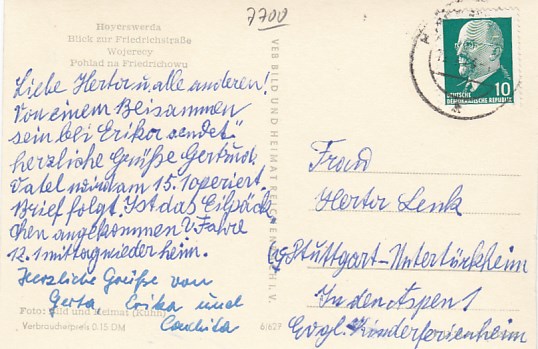 7700
Hoyerswerda
Blick zur Friedrichstraße
Wojerecy
Pohlad na Friedrichowu
Liebe Herta u. alle anderen!
Von einem Beisammen
sein bei Erika sendet
herzliche Grüße Gertrud.
Vatel wird am 15.1 operiert.
Brief folgt. Ist das Eilpäck
chen angekommen? Fahre
12.1 mittag wieder heim.
Herzliche Grüße von
Gerta, Erika und
Foto: Bild und Heimat (Kühn)
Verbraucherpreis 0.15 DM
VEB BILD UND HEIMAT REICHENBACH I. V.
6/627
10
DEUTSCHE
DEMOKRATISCHE REPUBLIK
Frau
Herta Lenk
Stuttgart-Untertürkheim
In den Aspen 1
Evgl. Kinderferienheim